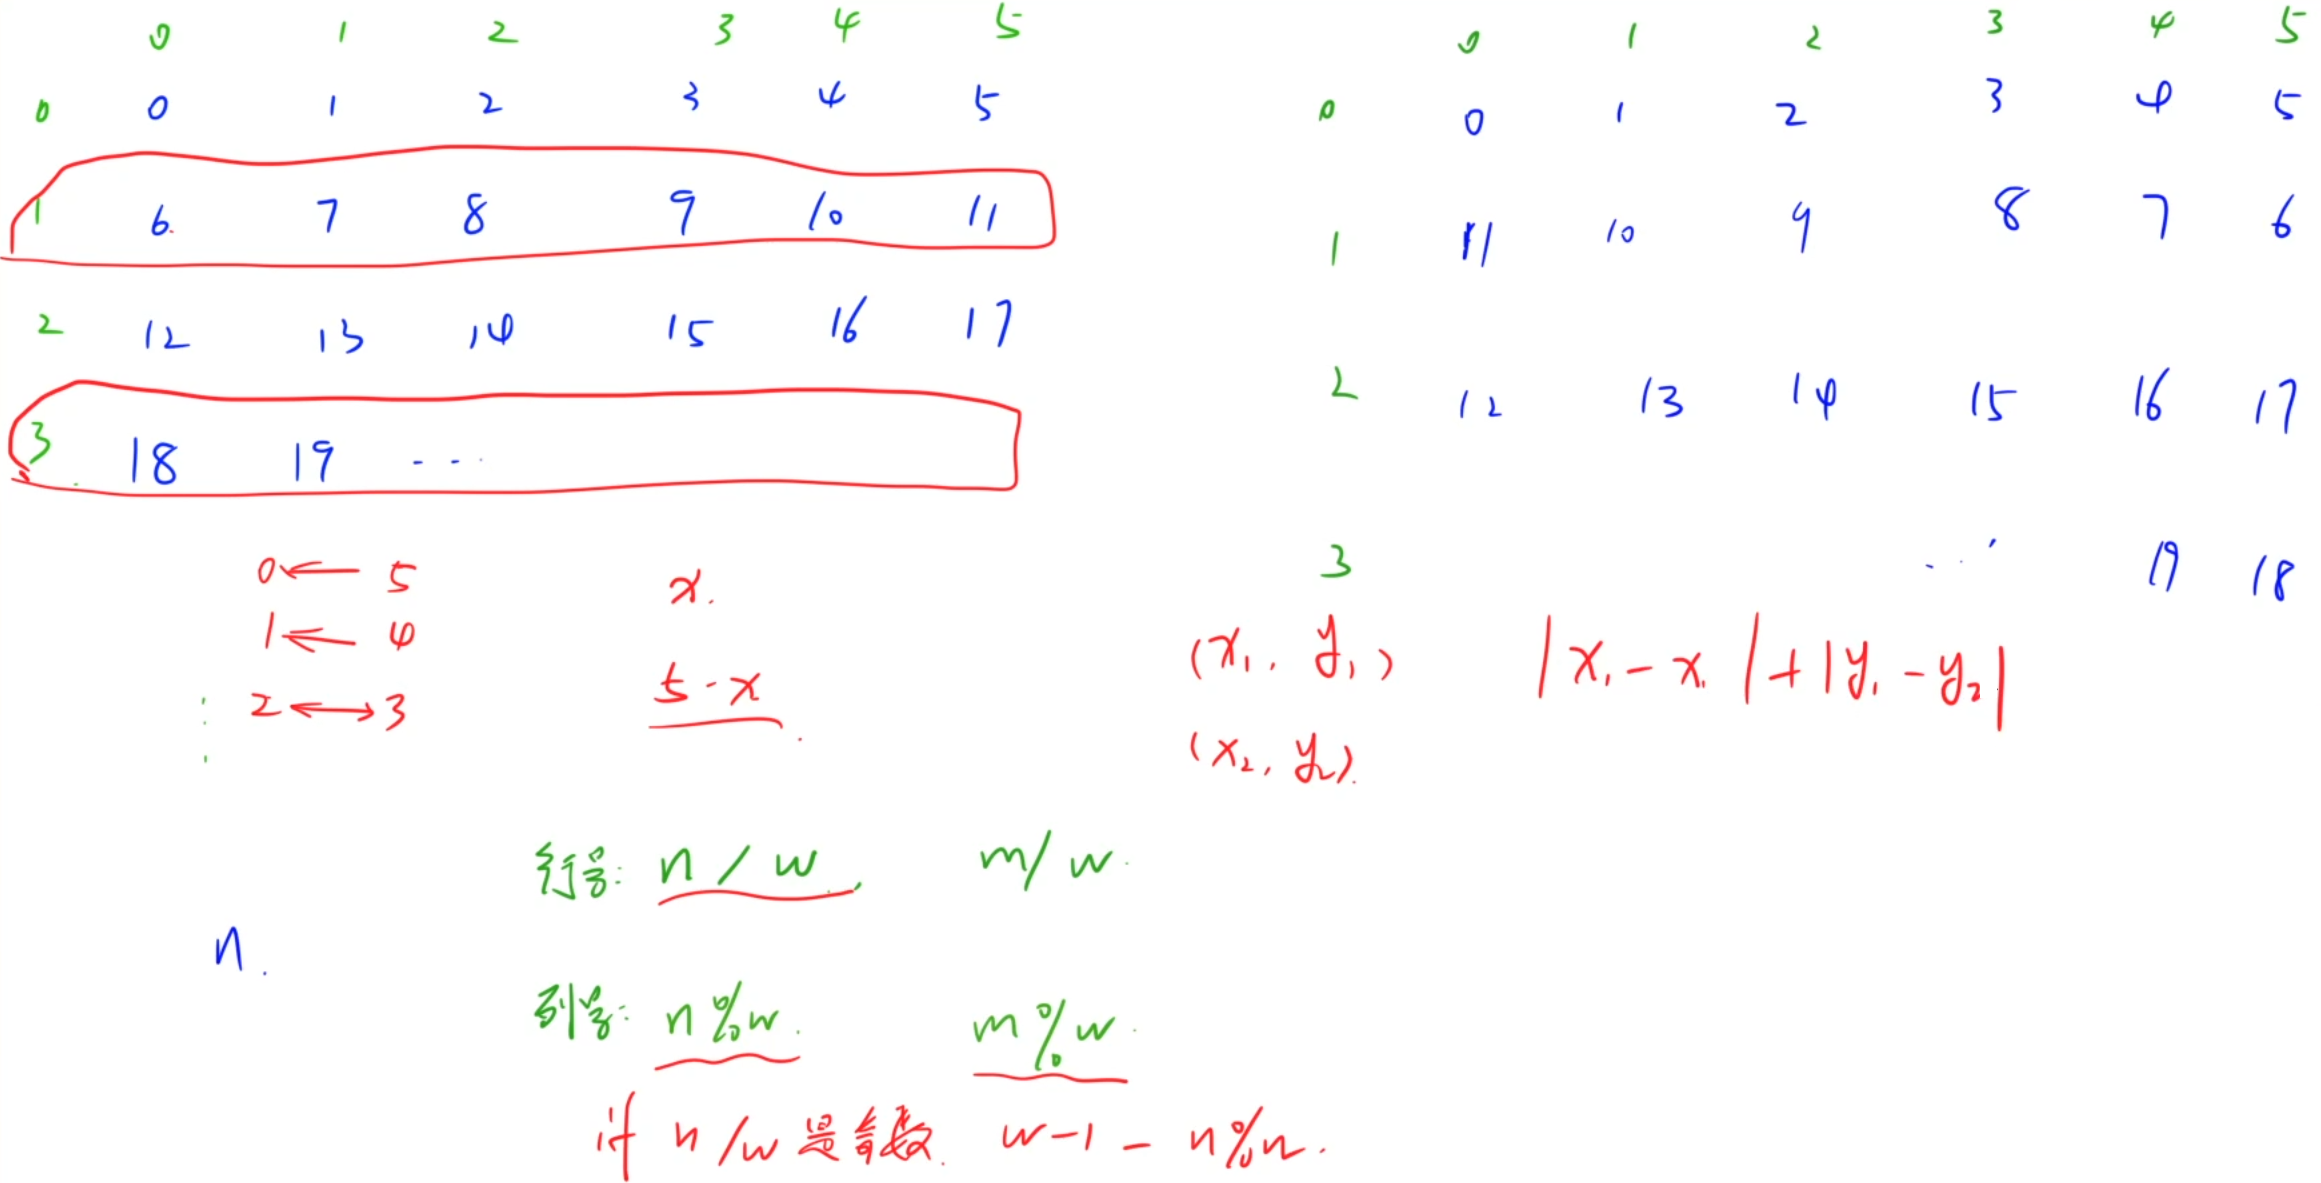 0 1 2 3 4 5
0 0 1 2 3 4 5
1 6 7 8 9 10 11
2 12 13 14 15 16 17
3 18 19 ...
0 ← 5
1 ← 4
2 ↔ 3
x.
5-x
0 1 2 3 4 5
0 0 1 2 3 4 5
1 11 10 9 8 7 6
2 12 13 14 15 16 17
3 ... 19 18
(x₁, y₁)
(x₂, y₂).
|x₁ - x₁| + |y₁ - y₂|
行号: n / w, m/w.
n.
列号: n%w. m%w.
if n/w是奇数. w-1-n%w.